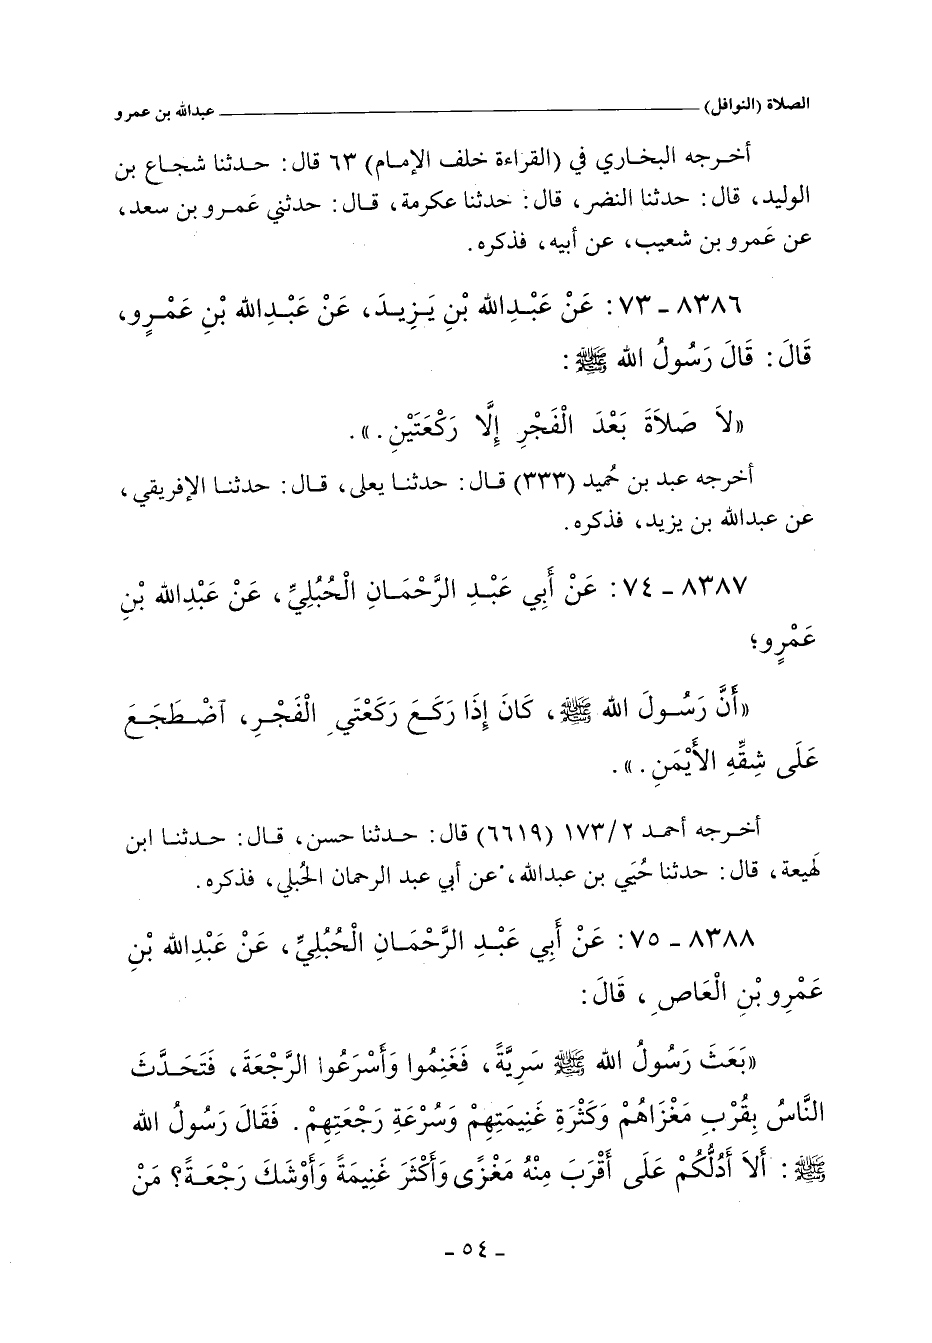 الصلاة (النوافل) ــــــــــــــــــــ عبدالله بن عمرو
أخرجه البخاري في (القراءة خلف الإمام) ٦٣ قال: حدثنا شجاع بن
الوليد، قال: حدثنا النضر، قال: حدثنا عكرمة، قال: حدثني عَمرو بن سعد،
عن عَمرو بن شعيب، عن أبيه، فذكره.
٨٣٨٦ - ٧٣: عَنْ عَبْدِاللهِ بْنِ يَزِيدَ، عَنْ عَبْدِاللهِ بْنِ عَمْرٍو،
قَالَ: قَالَ رَسُولُ اللهِ ﷺ:
«لاَ صَلاَةَ بَعْدَ الْفَجْرِ إِلَّا رَكْعَتَيْنِ.».
أخرجه عبد بن حُميد (٣٣٣) قال: حدثنا يعلى، قال: حدثنا الإفريقي،
عن عبدالله بن يزيد، فذكره.
٨٣٨٧ - ٧٤: عَنْ أَبِي عَبْدِ الرَّحْمَانِ الْحُبُلِيِّ، عَنْ عَبْدِاللهِ بْنِ
عَمْرٍو؛
«أَنَّ رَسُولَ اللهِ ﷺ، كَانَ إِذَا رَكَعَ رَكْعَتَيِ الْفَجْرِ، اضْطَجَعَ
عَلَى شِقِّهِ الأَيْمَنِ.».
أخرجه أحمد ١٧٣/٢ (٦٦١٩) قال: حدثنا حسن، قال: حدثنا ابن
لَهيعة، قال: حدثنا حُيَي بن عبدالله، عن أبي عبد الرحمان الحُبلي، فذكره.
٨٣٨٨ - ٧٥: عَنْ أَبِي عَبْدِ الرَّحْمَانِ الْحُبُلِيِّ، عَنْ عَبْدِاللهِ بْنِ
عَمْرِو بْنِ الْعَاصِ، قَالَ:
«بَعَثَ رَسُولُ اللهِ ﷺ سَرِيَّةً، فَغَنِمُوا وَأَسْرَعُوا الرَّجْعَةَ، فَتَحَدَّثَ
النَّاسُ بِقُرْبِ مَغْزَاهُمْ وَكَثْرَةِ غَنِيمَتِهِمْ وَسُرْعَةِ رَجْعَتِهِمْ. فَقَالَ رَسُولُ اللهِ
ﷺ: أَلاَ أَدُلُّكُمْ عَلَى أَقْرَبَ مِنْهُ مَغْزًى وَأَكْثَرَ غَنِيمَةً وَأَوْشَكَ رَجْعَةً؟ مَنْ
- ٥٤ -